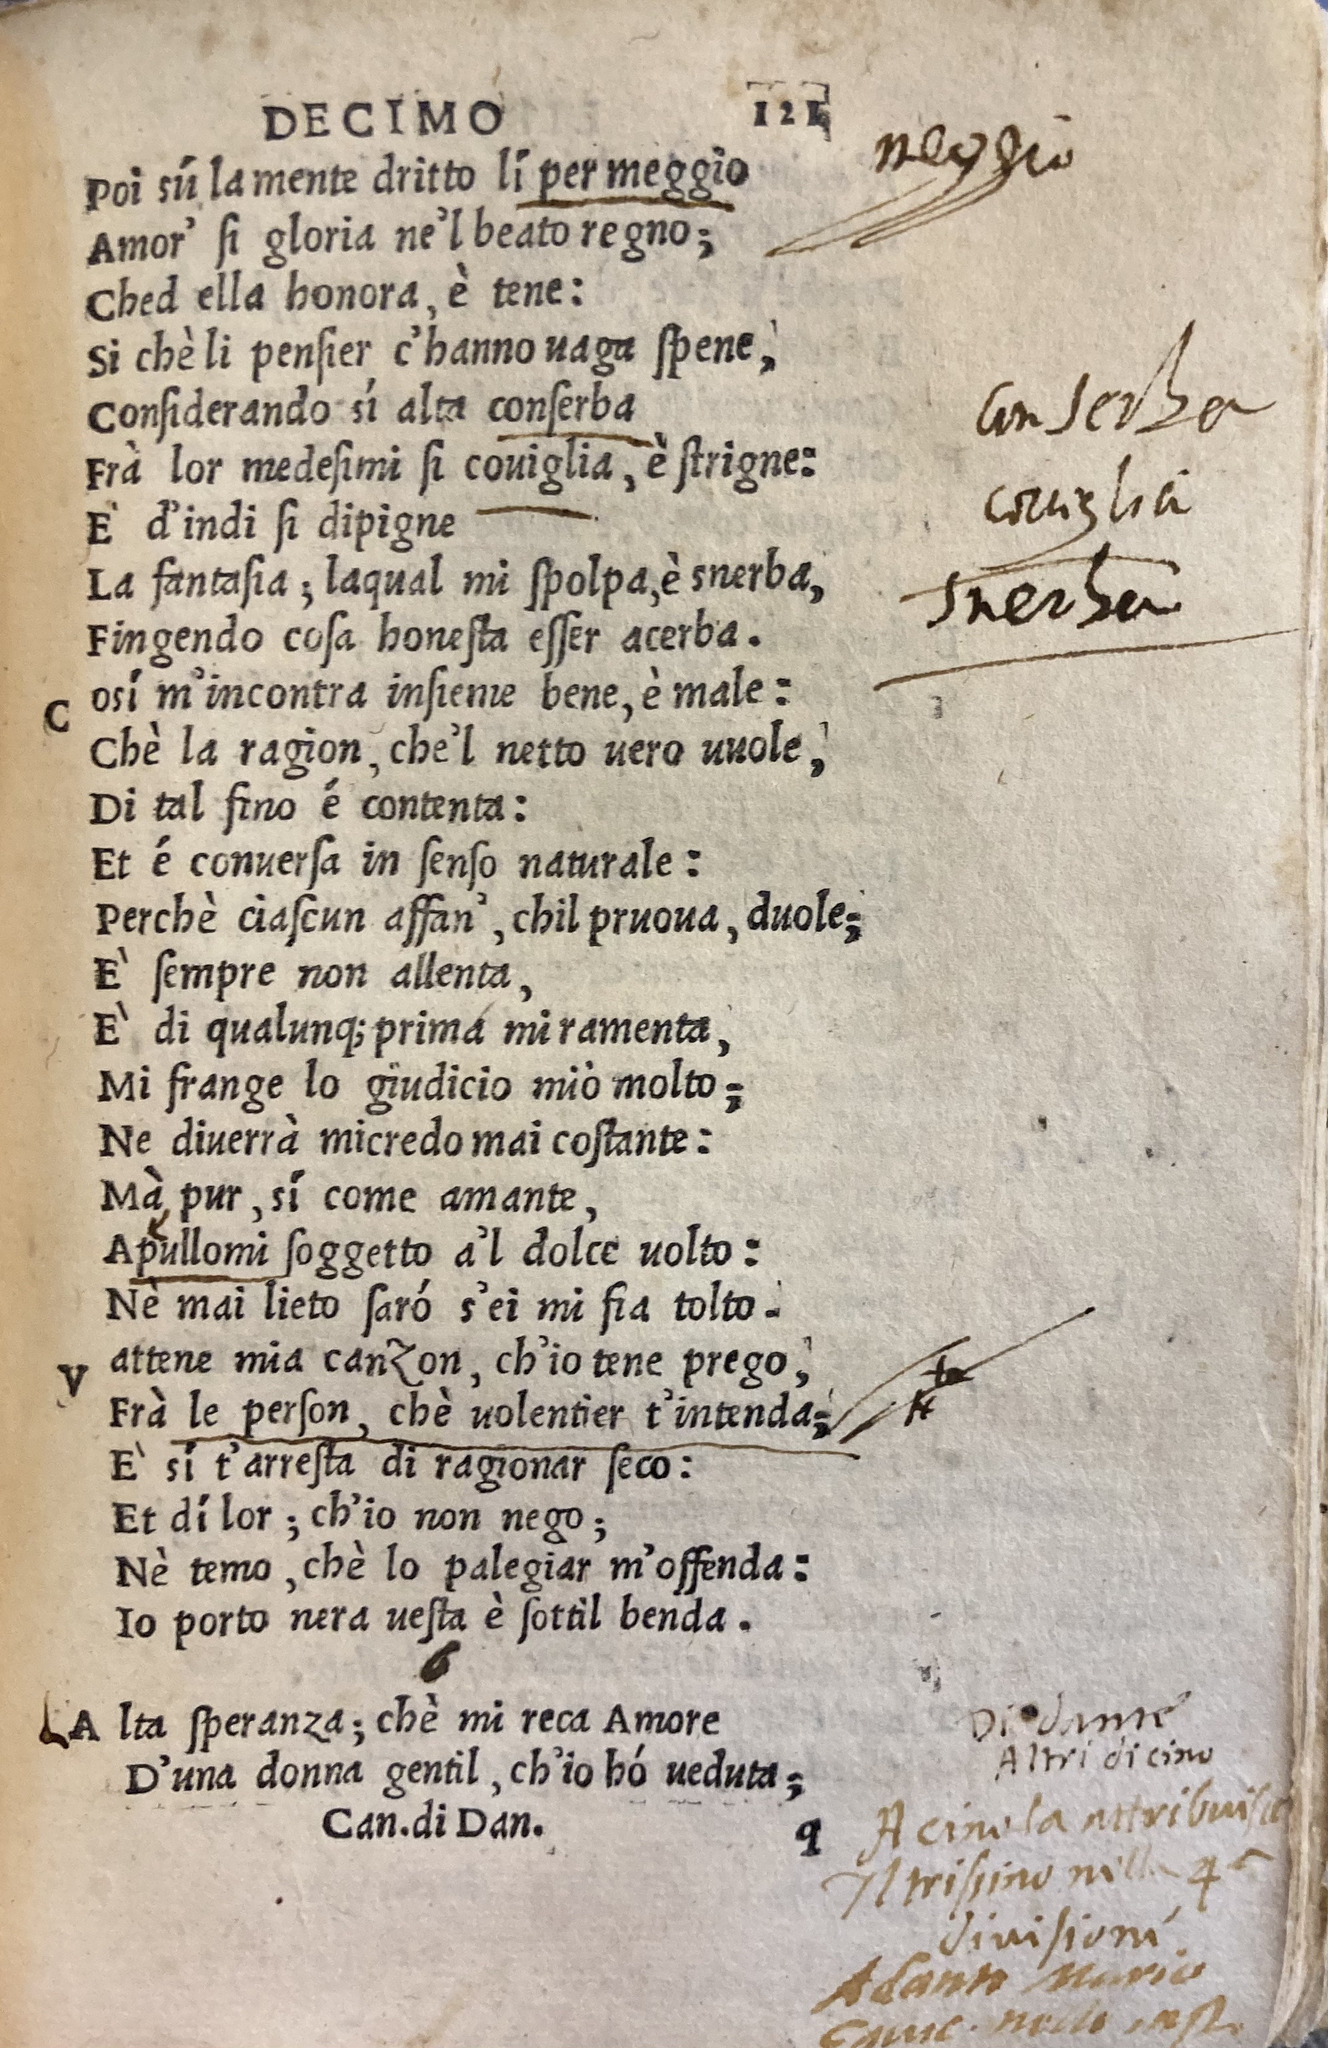 DECIMO 121
Poi sú la mente dritto lí per meggio
meggio
Amor' si gloria ne'l beato regno;
Ched ella honora, è tene:
Si chè li pensier c'hanno uaga spene,
Considerando sí alta conserba
conserba
Frà lor medesimi si couiglia, è strigne:
couiglia
E' d'indi si dipigne
La fantasia; laqual mi spolpa, è snerba,
snerba
Fingendo cosa honesta esser acerba.
Cosí m'incontra insieme bene, è male:
Chè la ragion, che'l netto uero uuole,
Di tal fino é contenta:
Et é conuersa in senso naturale:
Perchè ciascun affan', chil pruoua, duole;
E' sempre non allenta,
E' di qualunq; prima mi ramenta,
Mi frange lo giudicio mio molto;
Ne diuerrà micredo mai costante:
Mà pur, sí come amante,
Apullomi soggetto a'l dolce uolto:
Nè mai lieto saró s'ei mi fia tolto.
Vattene mia canzon, ch'io tene prego,
Frà le person, chè uolentier t'intenda;
E' sí t'arresta di ragionar seco:
Et dí lor; ch'io non nego;
Nè temo, chè lo palegiar m'offenda:
Io porto nera uesta è sottil benda.
6
Alta speranza; chè mi reca Amore
Di dante
D'una donna gentil, ch'io hó ueduta;
Altri di cino
Can. di Dan. q
A cino la attribuisce
Il trissino nella 4a
divisione
A dante Mario